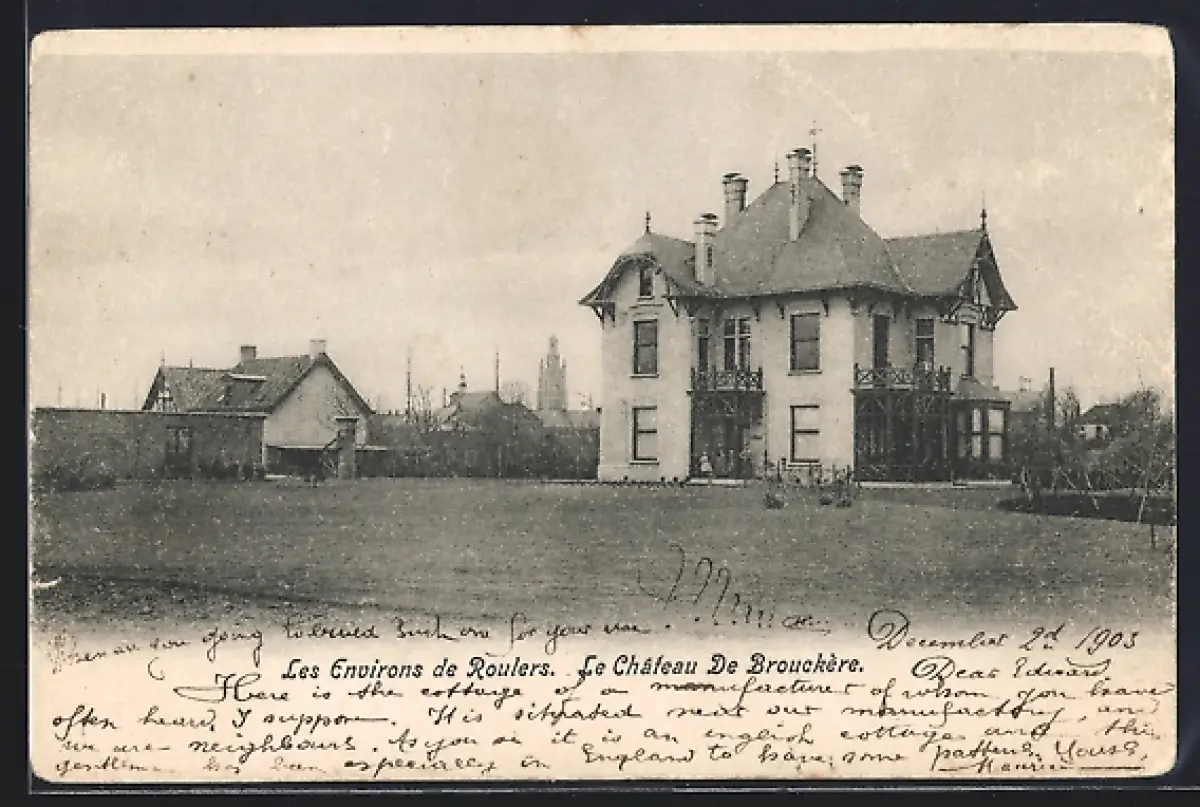 When are you going to build such one for your use.
December 2d 1903
Les Environs de Roulers. Le Château De Brouckère.
Dear Edward
Here is the cottage of a manufacturer of whom you have
often heard, I suppose. It is situated near our manufactory, and
we are neighbours. As you see it is an english cottage and this
gentleman has been especially in England to have some patterns. Yours,
Maurice